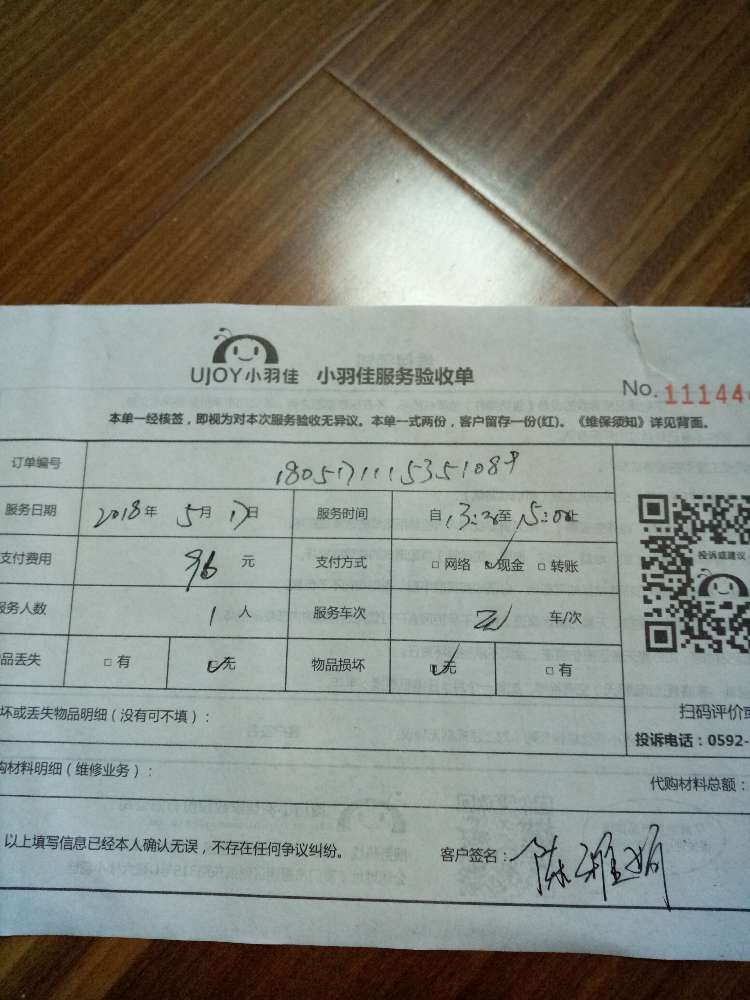 UJOY小羽佳 小羽佳服务验收单
No. 11144
本单一经核签，即视为对本次服务验收无异议。本单一式两份，客户留存一份(红)。《维保须知》详见背面。
订单编号
服务日期 2018年 5月 17日 服务时间 自 至 15:00止
支付费用 96 元 支付方式 □ 网络 ☑现金 □ 转账
服务人数 1 人 服务车次 车/次
品丢失 □ 有 ☑无 物品损坏 ☑无 □ 有
投诉或建议
坏或丢失物品明细（没有可不填）：
扫码评价或
投诉电话：0592-
购材料明细（维修业务）：
代购材料总额：
以上填写信息已经本人确认无误，不存在任何争议纠纷。 客户签名：陈雅娟